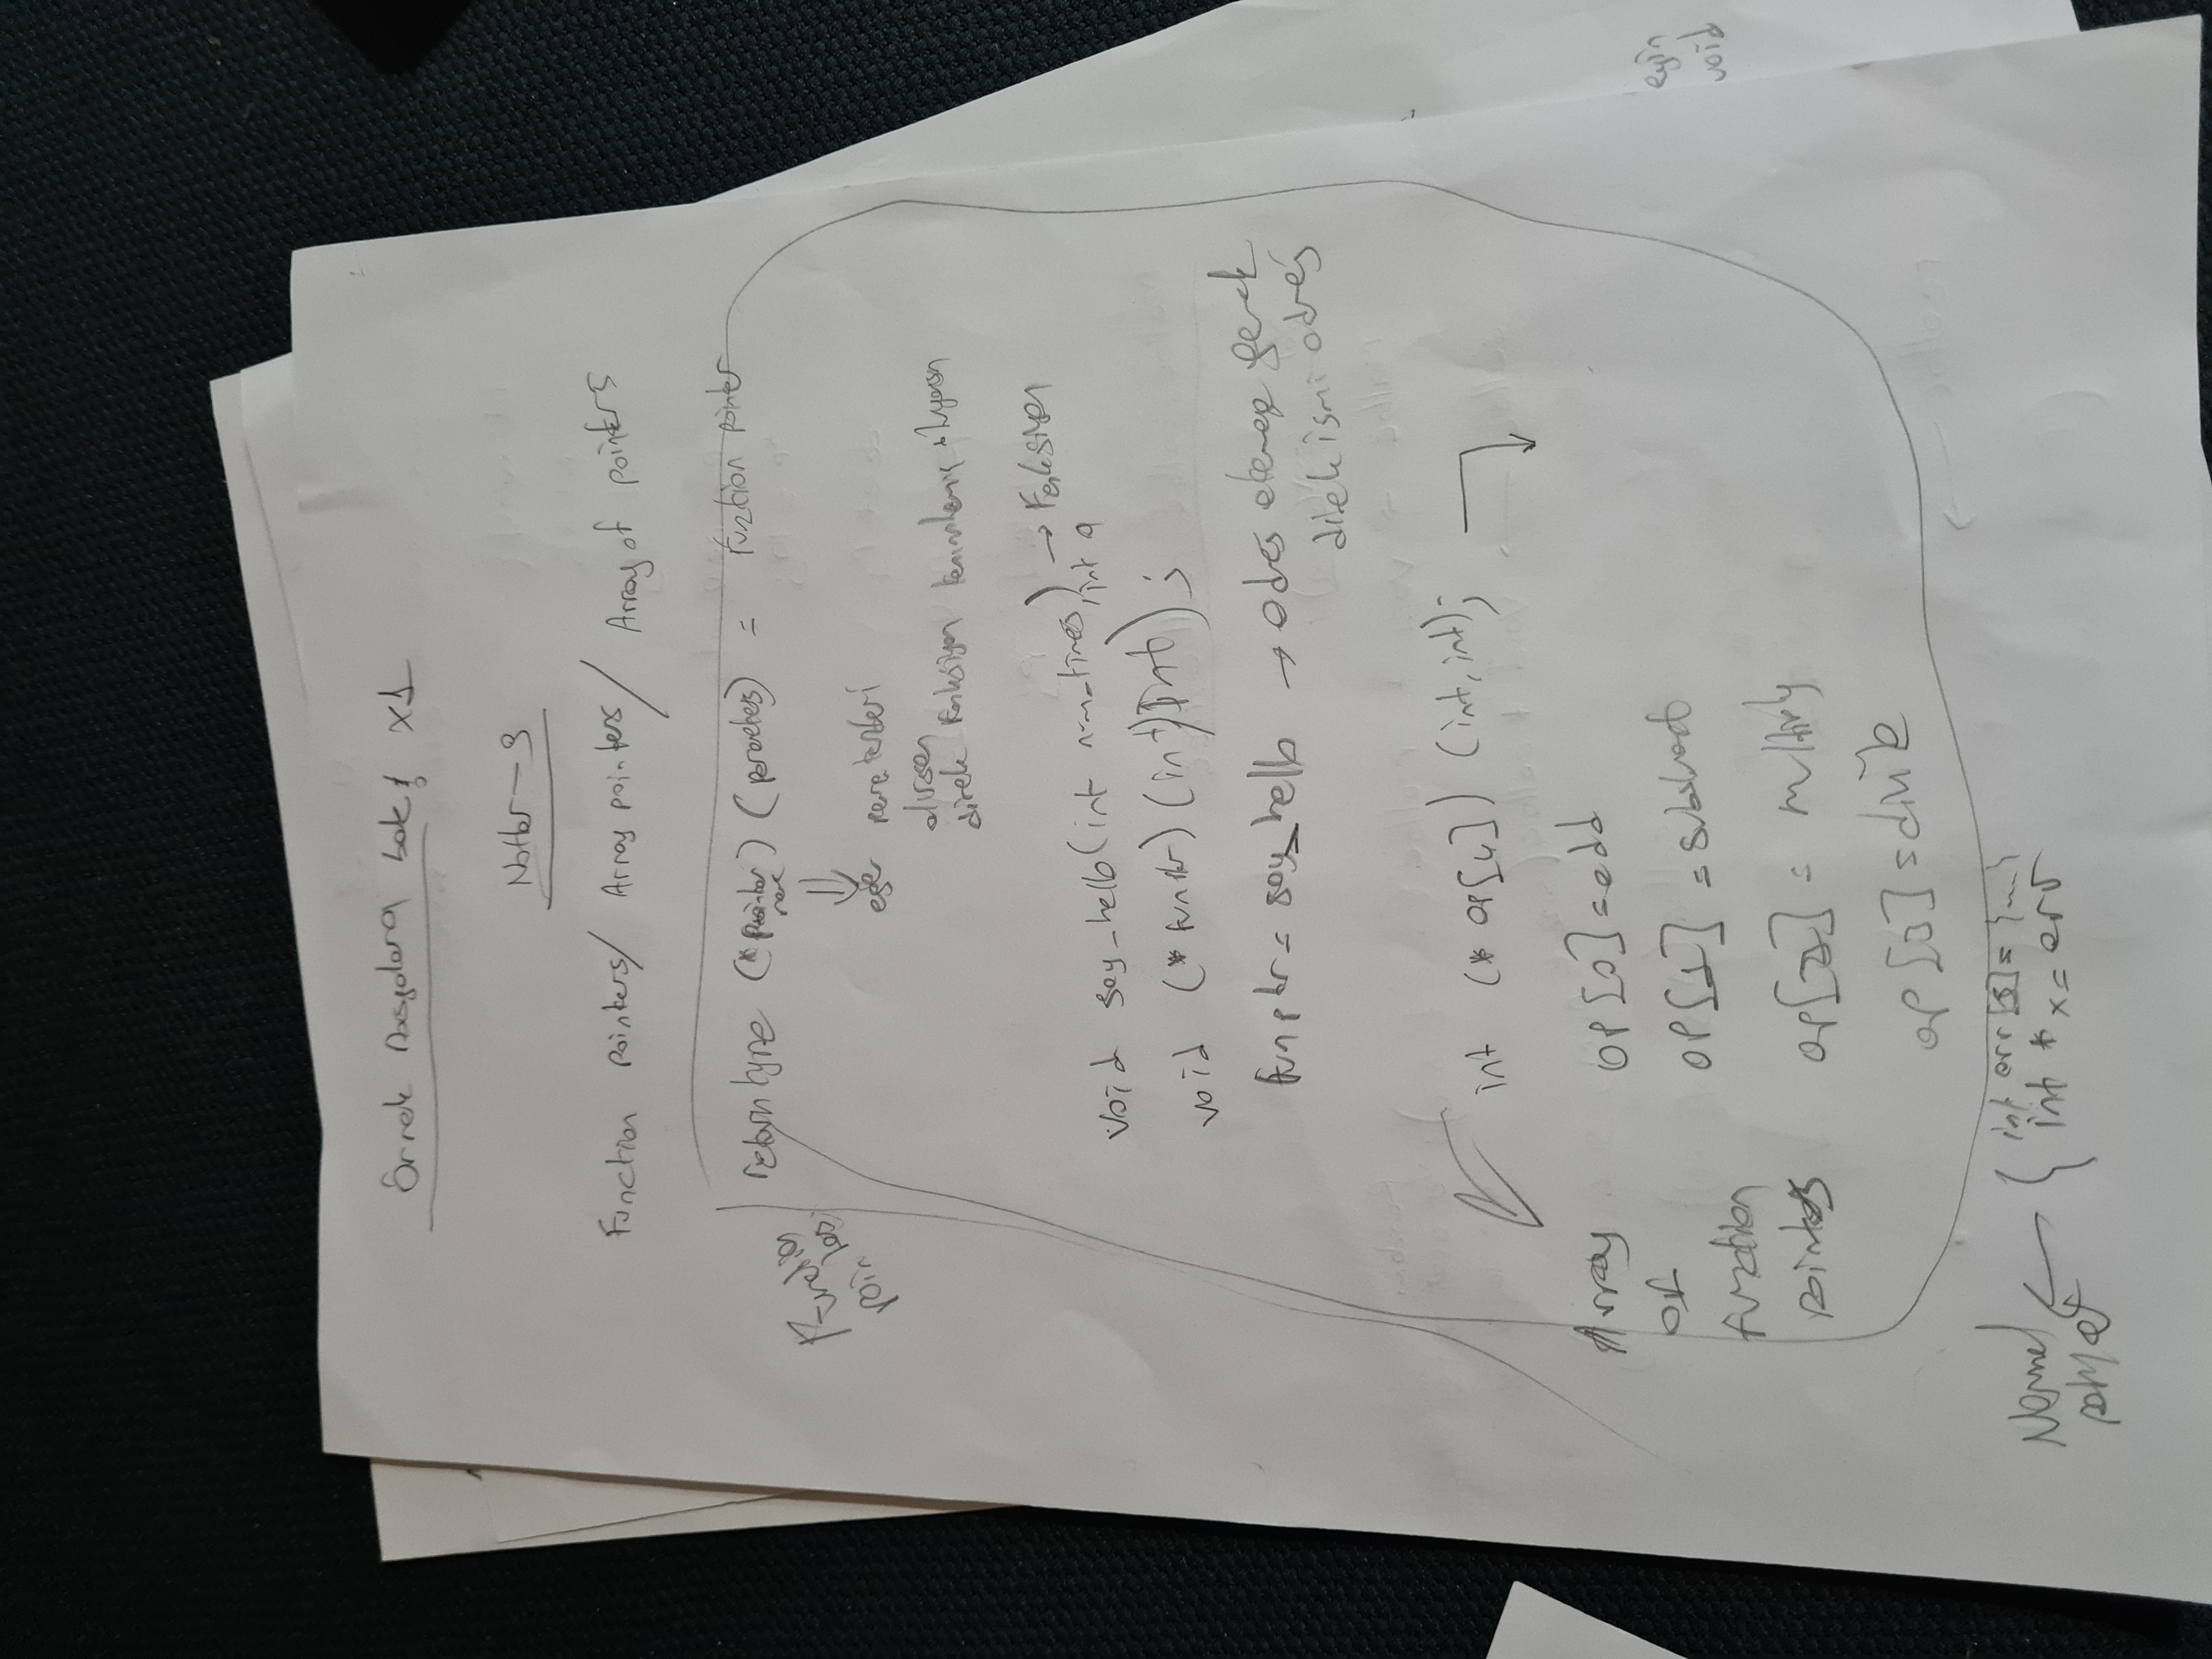 Örnek Dosyalara bak! x1
Notlar-3
Function pointers/ Array pointers/ Array of pointers
Function
pointers
return type (*pointer name) (parameters) = function pointer
eğer parantezleri
olursan
direk fonksiyon tanımlamış oluyorsun
void say_hello(int num_times, int a) → Fonksiyon
void (*funptr) (int, int);
funptr = say_hello → adres almaya gerek
direk ismi adres
int (*op[4]) (int, int);
Array
of
function
pointers
op[0] = add
op[1] = substract
op[2] = multiply
op[3] = divide
int arr[5] = {...}
int *x = arr
Normal
eyin
void